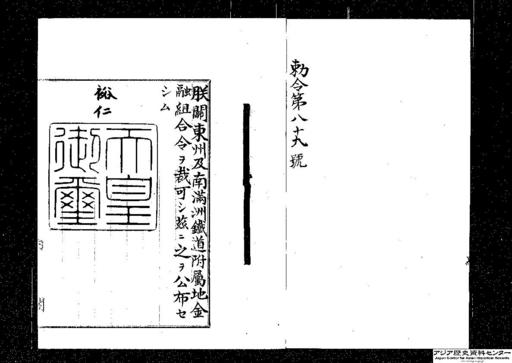 勅令第八十九號
朕關東州及南滿洲鐵道附屬地金
融組合令ヲ裁可シ茲ニ之ヲ公布セ
シム
裕仁
天皇
御璽
内閣
アジア歴史資料センター
Japan Center for Asian Historical Records